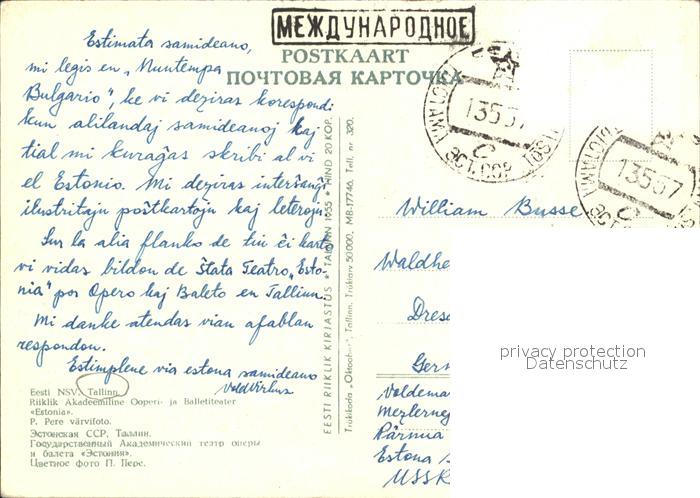 МЕЖДУНАРОДНОЕ
POSTKAART
ПОЧТОВАЯ КАРТОЧКА
Estimata samideano,
mi legis en „Nuntempa
Bulgario", ke vi deziras korespondi
kun alilandaj samideanoj kaj
tial mi kuraĝas skribi al vi
el Estonio. Mi deziras interŝanĝi
ilustritajn poŝtkartojn kaj leterojn.
Sur la alia flanko de tiu ĉi karto
vi vidas bildon de Ŝtata Teatro „Esto-
nia" por Opero kaj Baleto en Tallinn.
Mi danke atendas vian afablan
respondon.
Estimplene via estona samideano
Eesti NSV. Tallinn.
Riiklik Akadeemiline Ooperi- ja Balletiteater
«Estonia».
P. Pere värvifoto.
Эстонская ССР, Таллин.
Государственный Академический театр оперы
и балета «Эстония».
Цветное фото П. Пере.
EESTI RIIKLIK KIRJASTUS ★ TALLINN 1955 ★ HIND 20 KOP.
Trükikoda „Oktoober", Tallinn. Trükiarv 50.000, MB-17746, Tell. nr. 320.
13557
ЭСТ.ССР
13557
William Busse
Waldhe
Dres
Germ
Voldema
Pärnua
Estona
USSR
privacy protection
Datenschutz